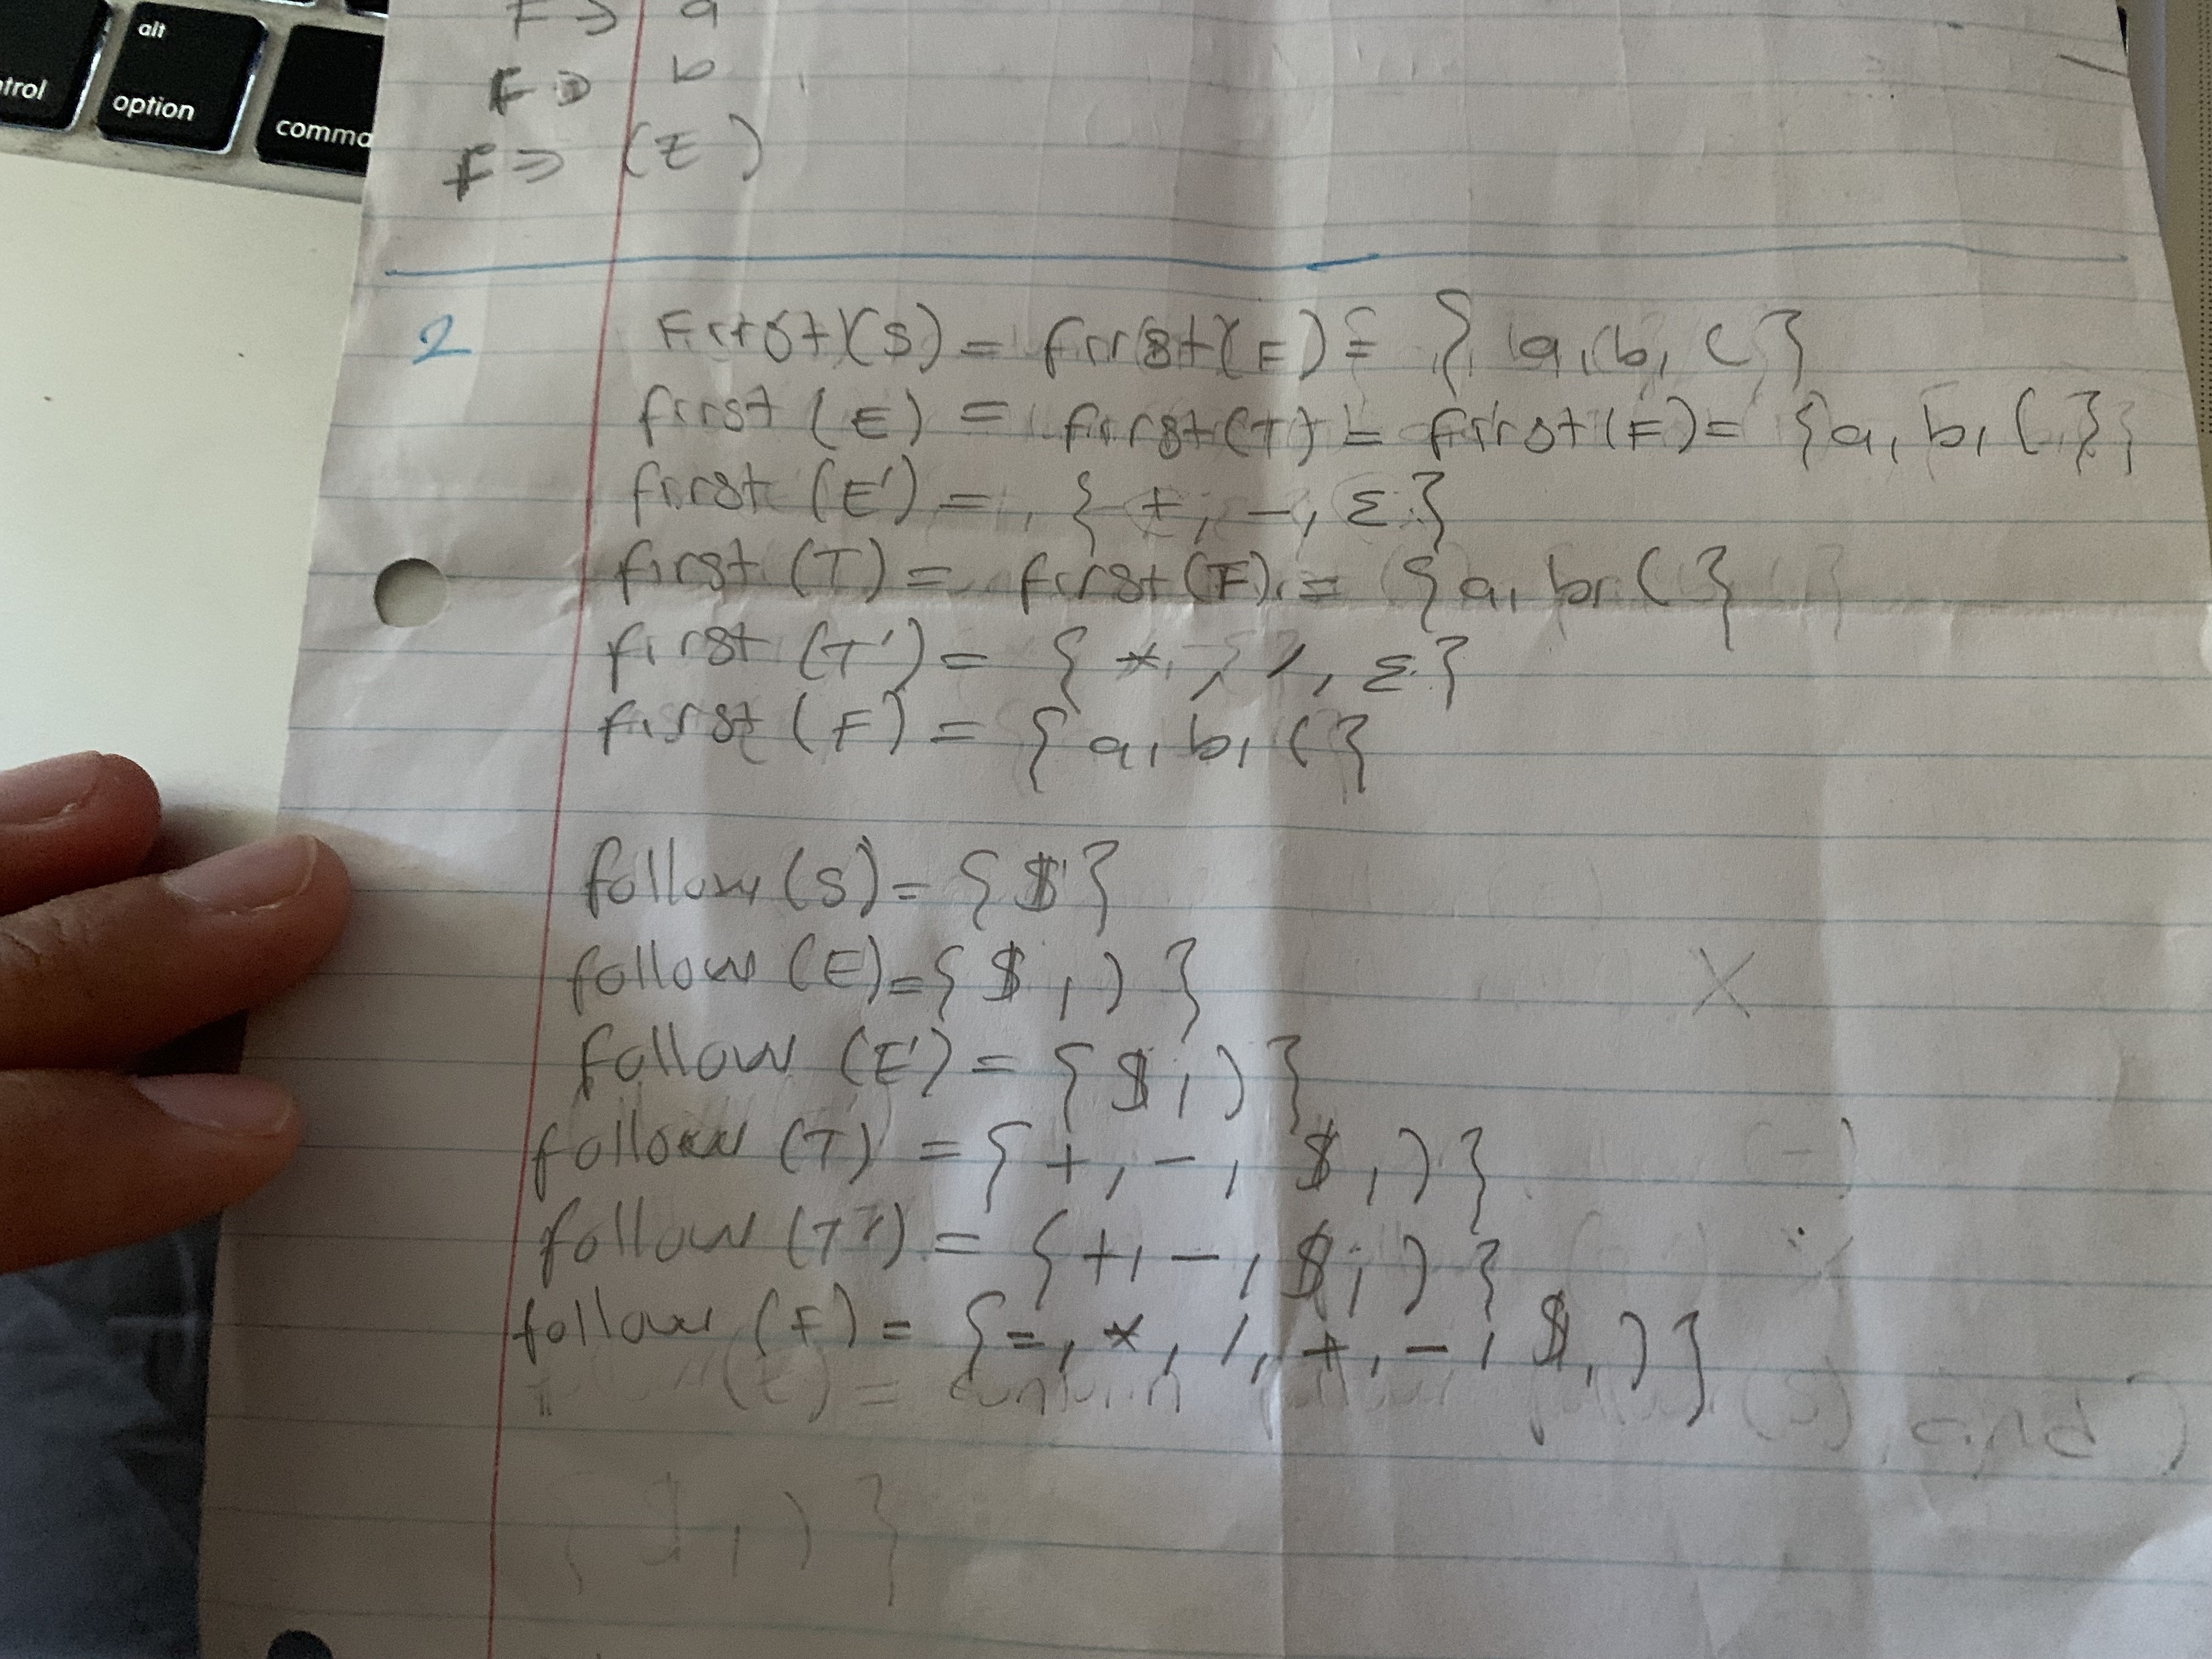 alt
option
trol
comma
F => a
F => b
F => (E)
2
First(S) = first(F) = { a, b, ( }
first (E) = first(T) = first(F) = {a, b, ( }
first (E') = { +, -, ε }
first (T) = first(F) = {a, b, ( }
first (T') = { *, /, ε }
first (F) = { a, b, ( }
follow (S) = { $ }
follow (E) = { $, ) }
X
follow (E') = { $, ) }
follow (T) = { +, -, $, ) }
follow (T') = { +, -, $, ) }
follow (F) = { =, *, /, +, -, $, ) }
(E) = contain follow (S) and )
{ $, ) }